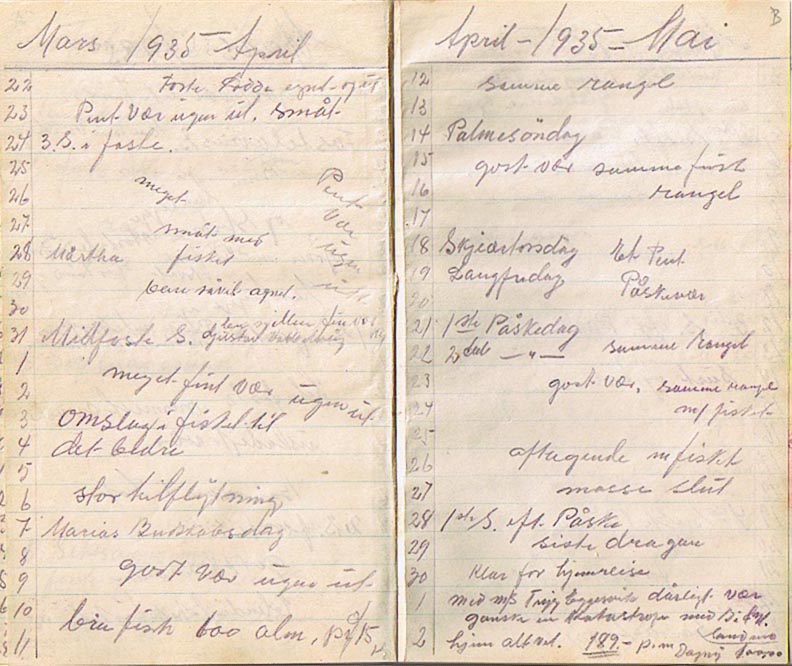 Mars 1935 - April
22 Første Fødda egnet og ut
23 Pent Vær ugen ut. småt-
24 3. S. i faste.
25
meget Pent
26
Vær
27 småt med ugen
28 Märtha fisket ut
29
bare såvit agnet.
30
31 Midfaste S.
1
meget fint vær ugen ut
2
3 omslag i fisket til
4 det bedre
5
6 stor tilflytning
7 Marias Budskabsdag
8
9 godt vær ugen ut
10
11 bra fisk 600 alm,
April - 1935 - Mai
B
12 samme rangel
13
14 Palmesöndag
15 godt vær samme fisk
16 rangel
17
18 Skjærtorsdag Et Pent
19 Langfredag Påskevær
20
21 1ste Påskedag
22 2den —"— samme Rangel
23 godt vær, samme rangel
24 m/ fisket
25
26 aftagende m fisket
27 masse slut
28 1ste S. eft. Påske
29 siste dragar
30 Klar for hjemreise
1 med m/s Trygg dårligt vær
ganske en Katastrofe med
land mo
2 hjem alt vel. 189.- p.m Dagny